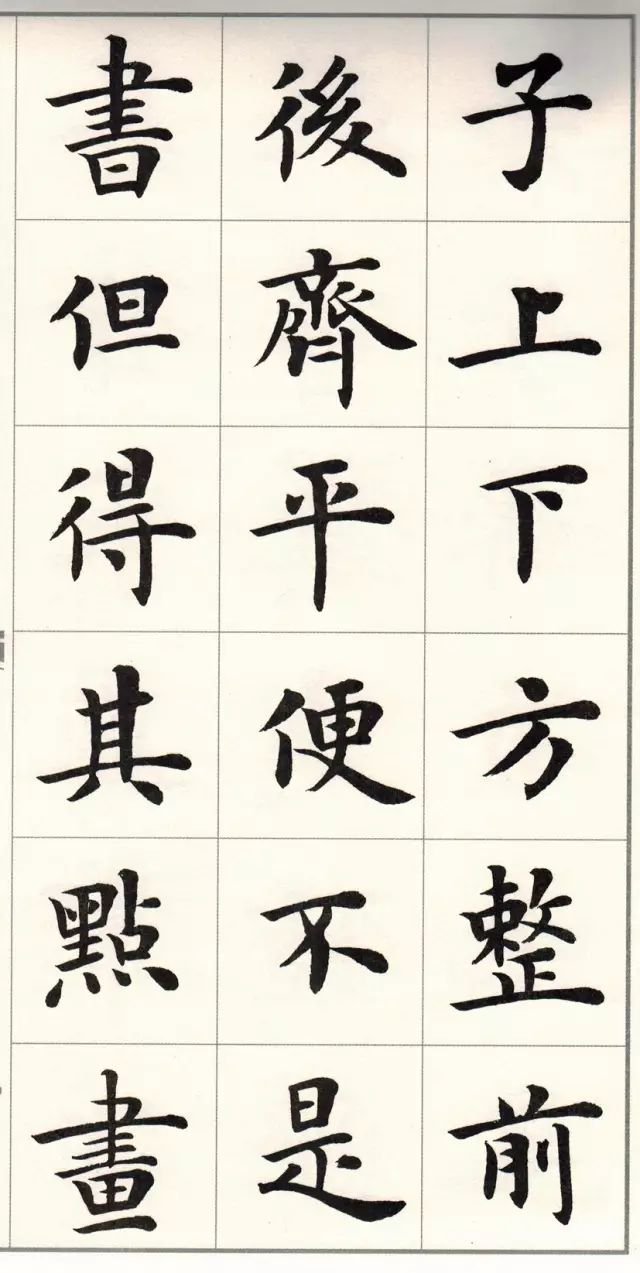 子上下方整前
後齊平便不是
書但得其點畫